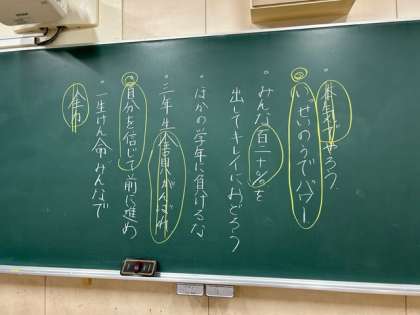 ・やろう
いっせいのうでパワー
・みんな百二十%を
出してキレイにおどろう
・ほかの学年に負けるな
・三年生全員がんばれ
自分を信じて前に進め
・一生けん命みんなで
全力